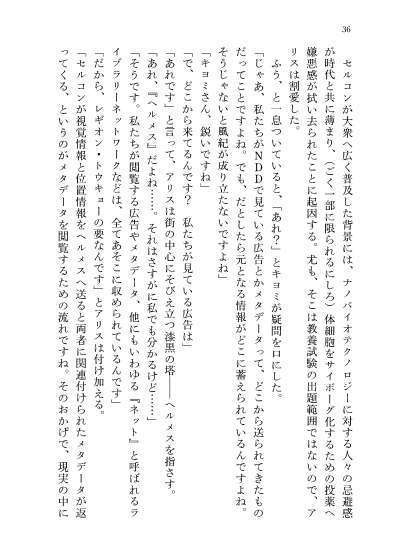 36
　セルコンが大衆へ広く普及した背景には、ナノバイオテクノロジーに対する人々の忌避感
が時代と共に薄まり、（ごく一部に限られるにしろ）体細胞をサイボーグ化するための投薬へ
嫌悪感が拭い去られたことに起因する。尤も、そこは教養試験の出題範囲ではないので、ア
リスは割愛した。
　ふう、と一息ついていると、「あれ？」とキヨミが疑問を口にした。
「じゃあ、私たちがＮＤＤで見ている広告とかメタデータって、どこから送られてきたもの
だってことですよね。でも、だとしたら元となる情報がどこに蓄えられているんですよね。
そうじゃないと風紀が成り立たないですよね」
「キヨミさん、鋭いですね」
「で、どこから来てるんです？　私たちが見ている広告は」
「あれです」と言って、アリスは街の中心にそびえ立つ漆黒の塔――ヘルメスを指さす。
「あれ、『ヘルメス』だよね……。それはさすがに私でも分かるけど……」
「そうです。私たちが閲覧する広告やメタデータ、他にもいわゆる『ネット』と呼ばれるラ
イブラリーネットワークなどは、全てあそこに収められているんです」
「だから、レギオン・トウキョーの要なんです」とアリスは付け加える。
「セルコンが視覚情報と位置情報をヘルメスへ送ると両者に関連付けられたメタデータが返
ってくる、というのがメタデータを閲覧するための流れですね。そのおかげで、現実の中に